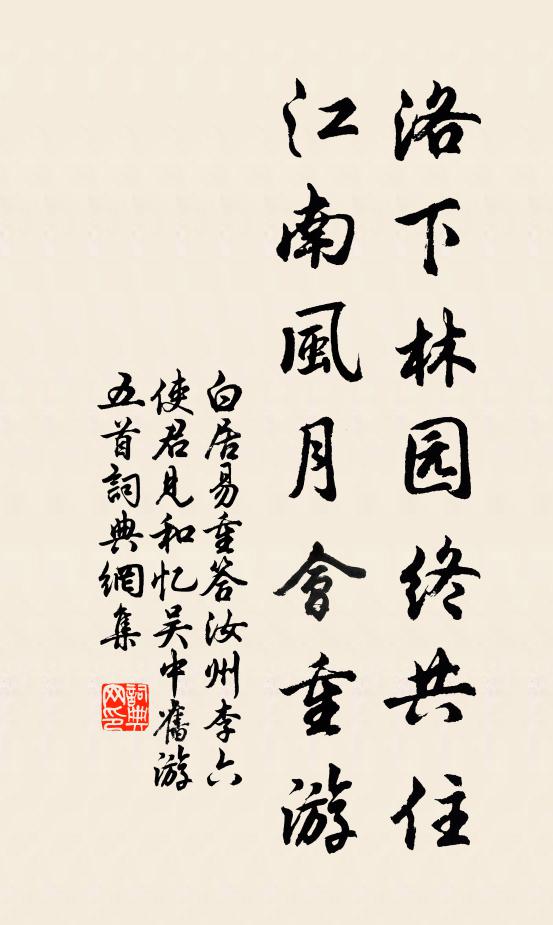 洛下林园终共住
江南風月會重游
白居易重答汝州李六
使君見和忆吴中舊游
五首詞典網集
詞典
网印